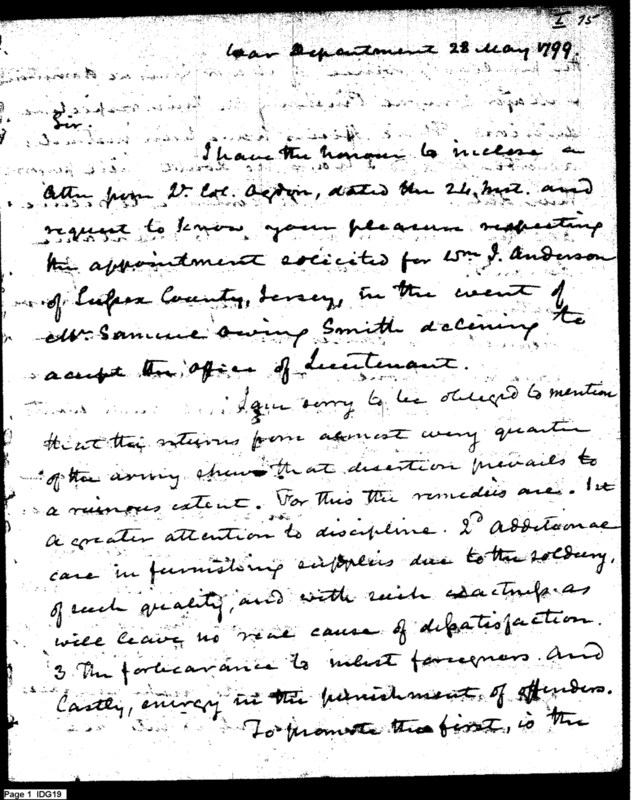 I 75
War Department 28 May 1799.
Sir.
I have the honour to inclose a
letter from Lt. Col. Ogdon, dated the 24, Inst. and
request to know your pleasure respecting
the appointment solicited for Wm J. Anderson
of Sussex County, Jersey, in the event of
Mr. Samuel Owing Smith declining to
accept the office of Lieutenant.
I am sorry to be obleged to mention
that the returns from almost every quarter
of the army shew that desertion prevails to
a ruinous extent. For this the remedies are. 1st
a greater attention to discipline. 2d additional
care in furnishing supplies due to the soldiery,
of such quality, and with such exactness as
will leave no real cause of dissatisfaction.
3 The forbearance to inlist foreigners. And
Lastly, energy in the punishment of offenders.
To promote the first, is the
Page 1 IDG19